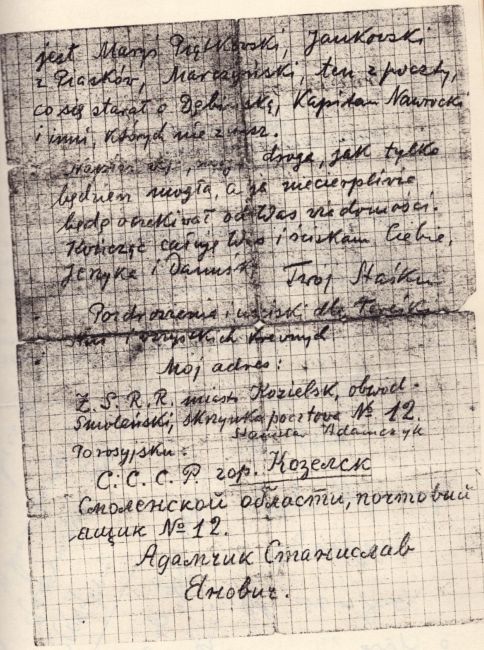 jest Maryś Piątkowski, Jankowski
z Piasków, Marczyński, ten z poczty,
co się starał o Dębińską, Kapitan Nawrocki
i inni, których nie znasz.
Napisz moja droga, jak tylko
będziesz mogła, a ja niecierpliwie
będę oczekiwał od Was wiadomości.
Kończąc całuję Was i ściskam Ciebie,
Jerzyka i Danusię
Twój Staśku
Pozdrowienia i uściski dla
i wszystkich krewnych
Mój adres:
Z.S.R.R. miasto Kozielsk, obwod-
Smoleński, skrzynka pocztowa № 12.
Stanisław Adamczyk
Po rosyjsku:
С.С.С.Р. гор. Козелск
Смоленской области, почтовий
ящик № 12.
Адамчик Станислав
Янович.